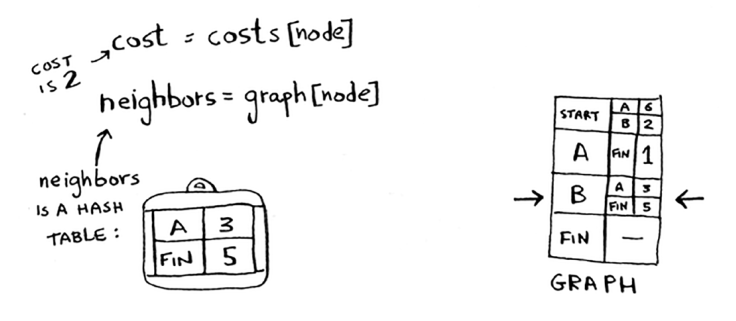 cost = costs[node]
COST
IS 2
neighbors = graph[node]
neighbors
IS A HASH
TABLE:
A 3
FIN 5
START A 6
B 2
A FIN 1
B A 3
FIN 5
FIN —
GRAPH